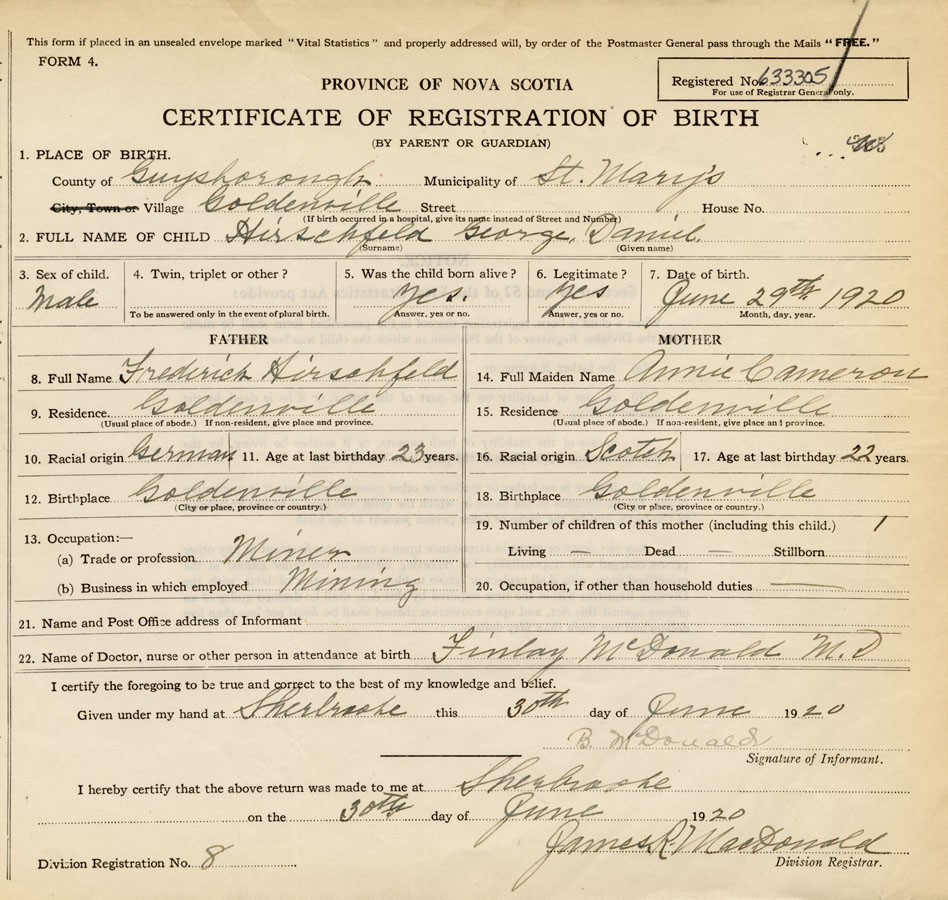 This form if placed in an unsealed envelope marked "Vital Statistics" and properly addressed will, by order of the Postmaster General pass through the Mails "FREE."
FORM 4.
Registered No. 633305
For use of Registrar General only.
PROVINCE OF NOVA SCOTIA
CERTIFICATE OF REGISTRATION OF BIRTH
(BY PARENT OR GUARDIAN)
1. PLACE OF BIRTH.
County of Guysborough Municipality of St. Mary's
City, Town or Village Goldenville Street House No.
(If birth occurred in a hospital, give its name instead of Street and Number)
2. FULL NAME OF CHILD Hirschfeld George, Daniel.
(Surname) (Given name)
3. Sex of child. 4. Twin, triplet or other? 5. Was the child born alive? 6. Legitimate? 7. Date of birth.
Male Yes. Yes June 29th 1920
To be answered only in the event of plural birth. Answer, yes or no. Answer, yes or no. Month, day, year.
FATHER MOTHER
8. Full Name Frederick Hirschfeld 14. Full Maiden Name Annie Cameron
9. Residence. Goldenville 15. Residence Goldenville
(Usual place of abode.) If non-resident, give place and province. (Usual place of abode.) If non-resident, give place and province.
10. Racial origin German 11. Age at last birthday 23 years. 16. Racial origin Scotch 17. Age at last birthday 22 years.
12. Birthplace Goldenville 18. Birthplace Goldenville
(City or place, province or country.) (City or place, province or country.)
19. Number of children of this mother (including this child.) 1
13. Occupation:—
(a) Trade or profession Miner Living — Dead — Stillborn
(b) Business in which employed Mining 20. Occupation, if other than household duties —
21. Name and Post Office address of Informant
22. Name of Doctor, nurse or other person in attendance at birth Finlay McDonald M.D
I certify the foregoing to be true and correct to the best of my knowledge and belief.
Given under my hand at Sherbrooke this 30th day of June 1920
B. McDonald
Signature of Informant.
I hereby certify that the above return was made to me at Sherbrooke
on the 30th day of June 1920
James R MacDonald
Division Registration No. 8 Division Registrar.